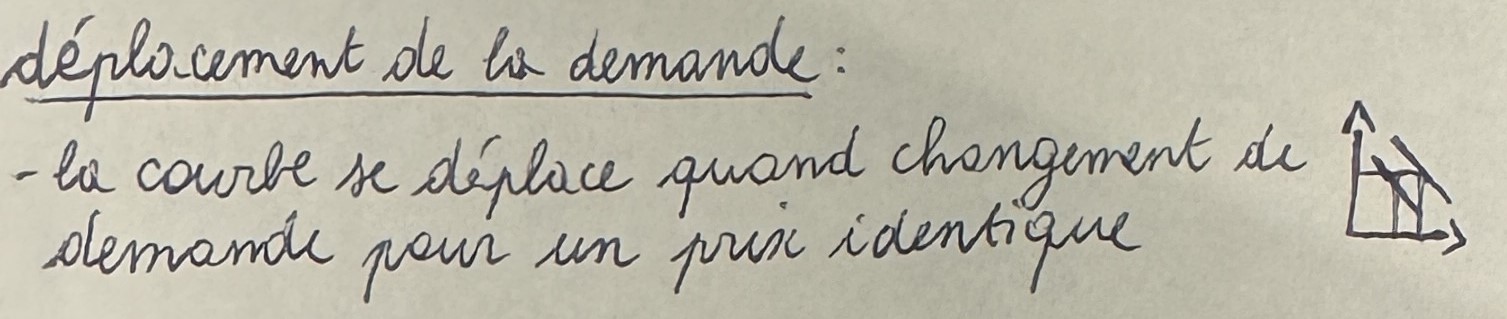 déplacement de la demande :
- la courbe se déplace quand changement de
demande pour un prix identique